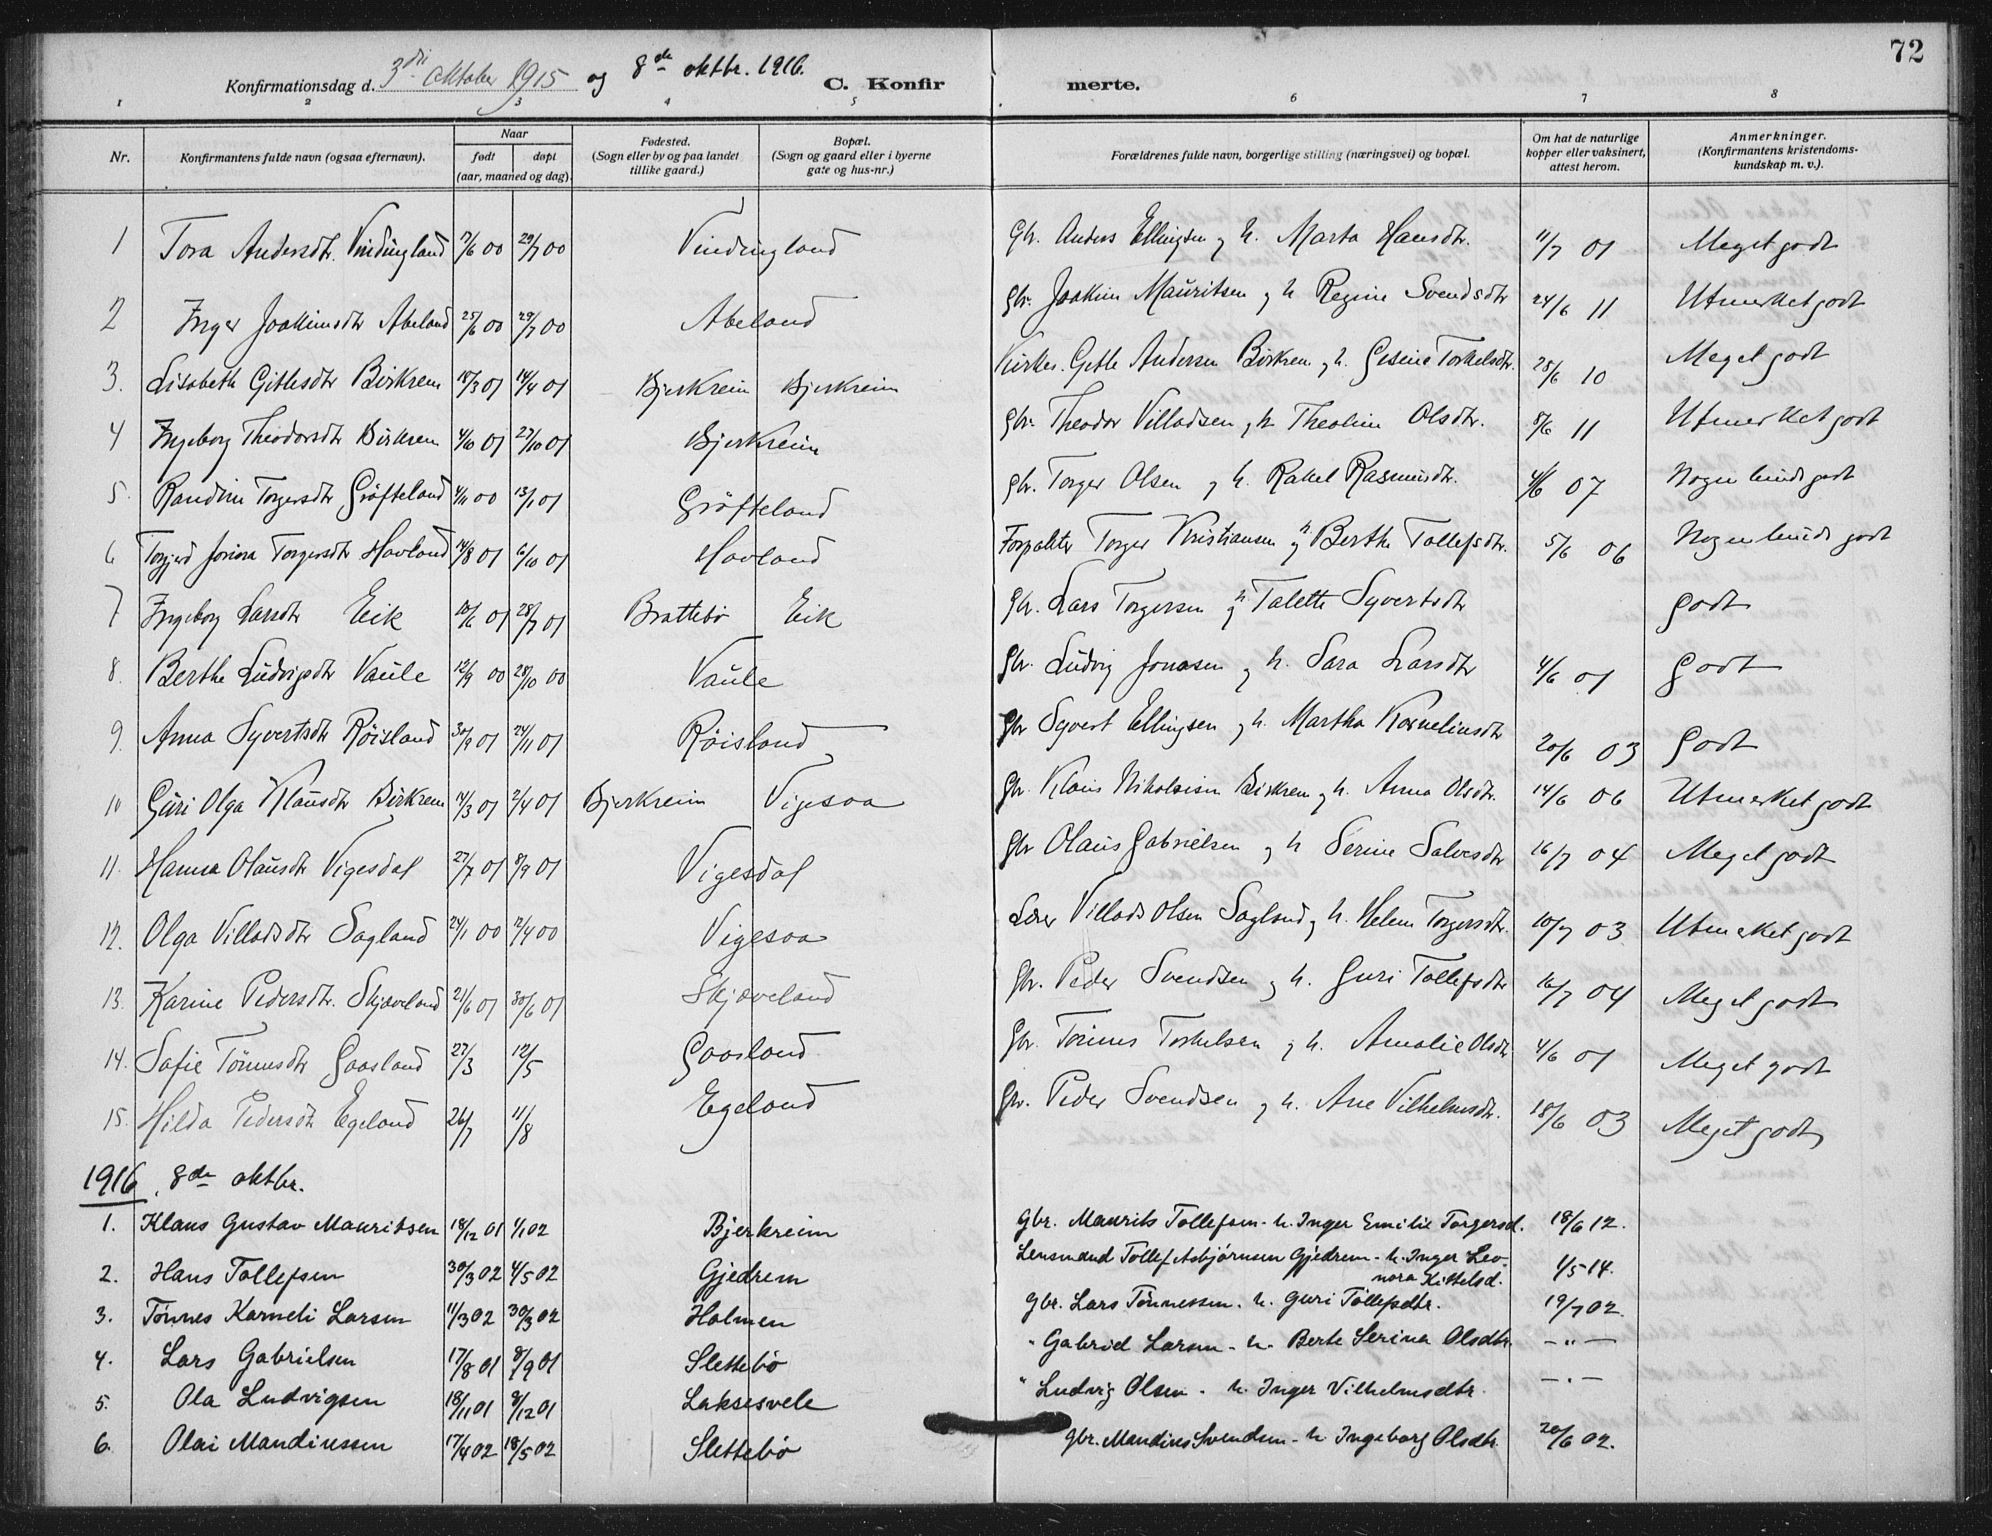 72
Konfirmationsdag d. 3di oktober 1915 og 8de oktbr. 1916. C. Konfir merte.
1 2 3 4 5 6 7 8
Nr. Konfirmantens fulde navn (ogsaa efternavn). Naar født døpt (aar, maaned og dag). Fødested. (Sogn eller by og paa landet tillike gaard.) Bopæl. (Sogn og gaard eller i byerne gate og hus-nr.) Forældrenes fulde navn, borgerlige stilling (næringsvei) og bopæl. Om hat de naturlige kopper eller vaksinert, attest herom. Anmerkninger. (Konfirmantens kristendomskundskap m. v.).
1 Tora Andersdtr. Vindingland 7/6 00 29/7 00 Vindingland Gbr. Anders Ellingsen og h. Marta Hansdtr. 11/7 01 Meget godt
2 Inger Joakimsdtr Abeland 25/6 00 29/7 00 Abeland Gbr. Joakim Mauritsen og h Regine Svendsdtr 24/6 11 Utmerket godt
3. Lisabeth Gitlesdtr Birkrem 18/3 01 14/4 01 Bjerkreim Bjerkreim Gitle Andersen Birkrem og h. Gesine Torkelsdtr. 28/6 10 Meget godt
4 Ingeborg Theodorsdtr Birkrem 4/10 01 27/10 01 Bjerkreim Gbr. Theodor Villadsen og h Theoline Olsdtr. 8/6 11 Utmerket godt
5. Randine Torgersdtr Gröfteland 4/11 00 13/1 01 Gröfteland Gbr. Torger Olsen og h. Rakel Rasmusdtr. 4/6 07 Nogenlunde godt
6 Torgersdtr Hovland 14/8 01 6/10 01 Hovland Forpakter Torger Kristiansen og h Berthe Tollefsdtr. 5/6 06 Nogenlunde godt
7 Ingeborg Larsdtr Eik 10/6 01 28/7 01 Brattebö Eik Gbr. Lars Torgersen og h. Talette Syvertsdtr godt
8. Berthe Ludvigsdtr Vaule 12/9 00 28/10 00 Vaule Gbr. Ludvig Jonasen og h. Sara Larsdtr 4/6 01 Godt
9. Anna Syvertsdtr Röisland 30/9 01 24/11 01 Röisland Gbr Syvert Ellingsen og h. Martha Korneliusdtr 20/6 03 Godt
10 Guri Olga Klausdtr Birkrem 14/3 01 2/4 01 Bjerkreim Vigesaa Gbr. Klaus Nikolaisen Birkrem og h. Anna Olsdtr. 14/6 06 Utmerket godt
11. Hanna Olausdtr Vigesdal 27/7 01 8/9 01 Vigesdal Gbr Olaus Gabrielsen og h Serine Salvesdtr 16/7 04 Meget godt
12. Olga Villadsdtr Sagland 24/1 00 12/4 00 Vigesaa Lærer Villads Olsen Sagland og h. Helene Torgersdtr. 10/7 03 Utmerket godt
13. Karine Pedersdtr. Skjæveland 21/6 01 30/6 01 Skjæveland Gbr. Peder Svendsen og h. Guri Tollefsdtr 16/7 04 Meget godt
14. Sofie Tönnesdtr Gaasland 27/3 12/5 Gaasland Gbr. Tönnes Torkelsen og h. Amalie Olsdtr 4/6 01 Meget godt
15. Hilda Pedersdtr Egeland 26/7 11/8 Egeland Gbr. Peder Svendsen og h. Ane Vilhelmsdtr. 18/6 03 Meget godt
1916, 8de oktbr.
1. Klaus Gustav Mauritsen 18/12 01 1/1 02 Bjerkreim Gbr. Maurits Tollefsen - h. Inger Emilie Torgersd. 18/6 12.
2. Hans Tollefsen 30/3 02 4/5 02 Gjedrem Lensmand Tollef Asbjörnsen Gjedrem - h. Inger Leonora Kittelsd. 1/5 14.
3. Tönnes Karneli Larsen 11/3 02 30/3 02 Holmen Gbr. Lars Tönnessen. h. Guri Tollefsdtr. 19/7 02.
4. Lars Gabrielsen 17/8 01 8/9 01 Slettebö " Gabriel Larsen - h. Berte Serina Olsdtr. — " —
5. Ola Ludvigsen 18/11 01 8/12 01 Laksesvele " Ludvig Olsen - h. Inger Vilhelmsdtr. — " —
6. Olai Mandiussen 17/4 02 18/5 02 Slettebö Gbr. Mandius Svendsen - h Ingeborg Olsdtr. 20/6 02.